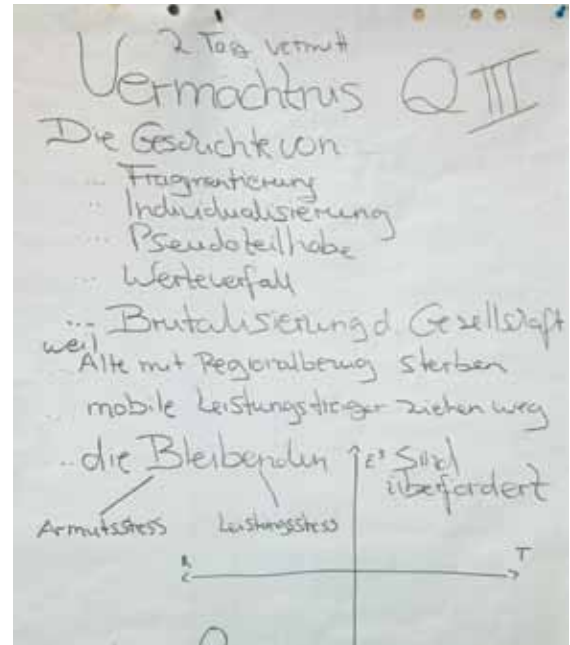 2 Tag vermitt
Vermächtnis Q III
Die Geschichte von
... Fragmentierung
... Individualisierung
... Pseudoteilhabe
... Werteverfall
... Brutalisierung d. Gesellschaft
weil
Alte mit Regionalbezug sterben
mobile Leistungsträger ziehen weg
.. die Bleibenden sind
überfordert
Armutsstress Leistungsstress
T